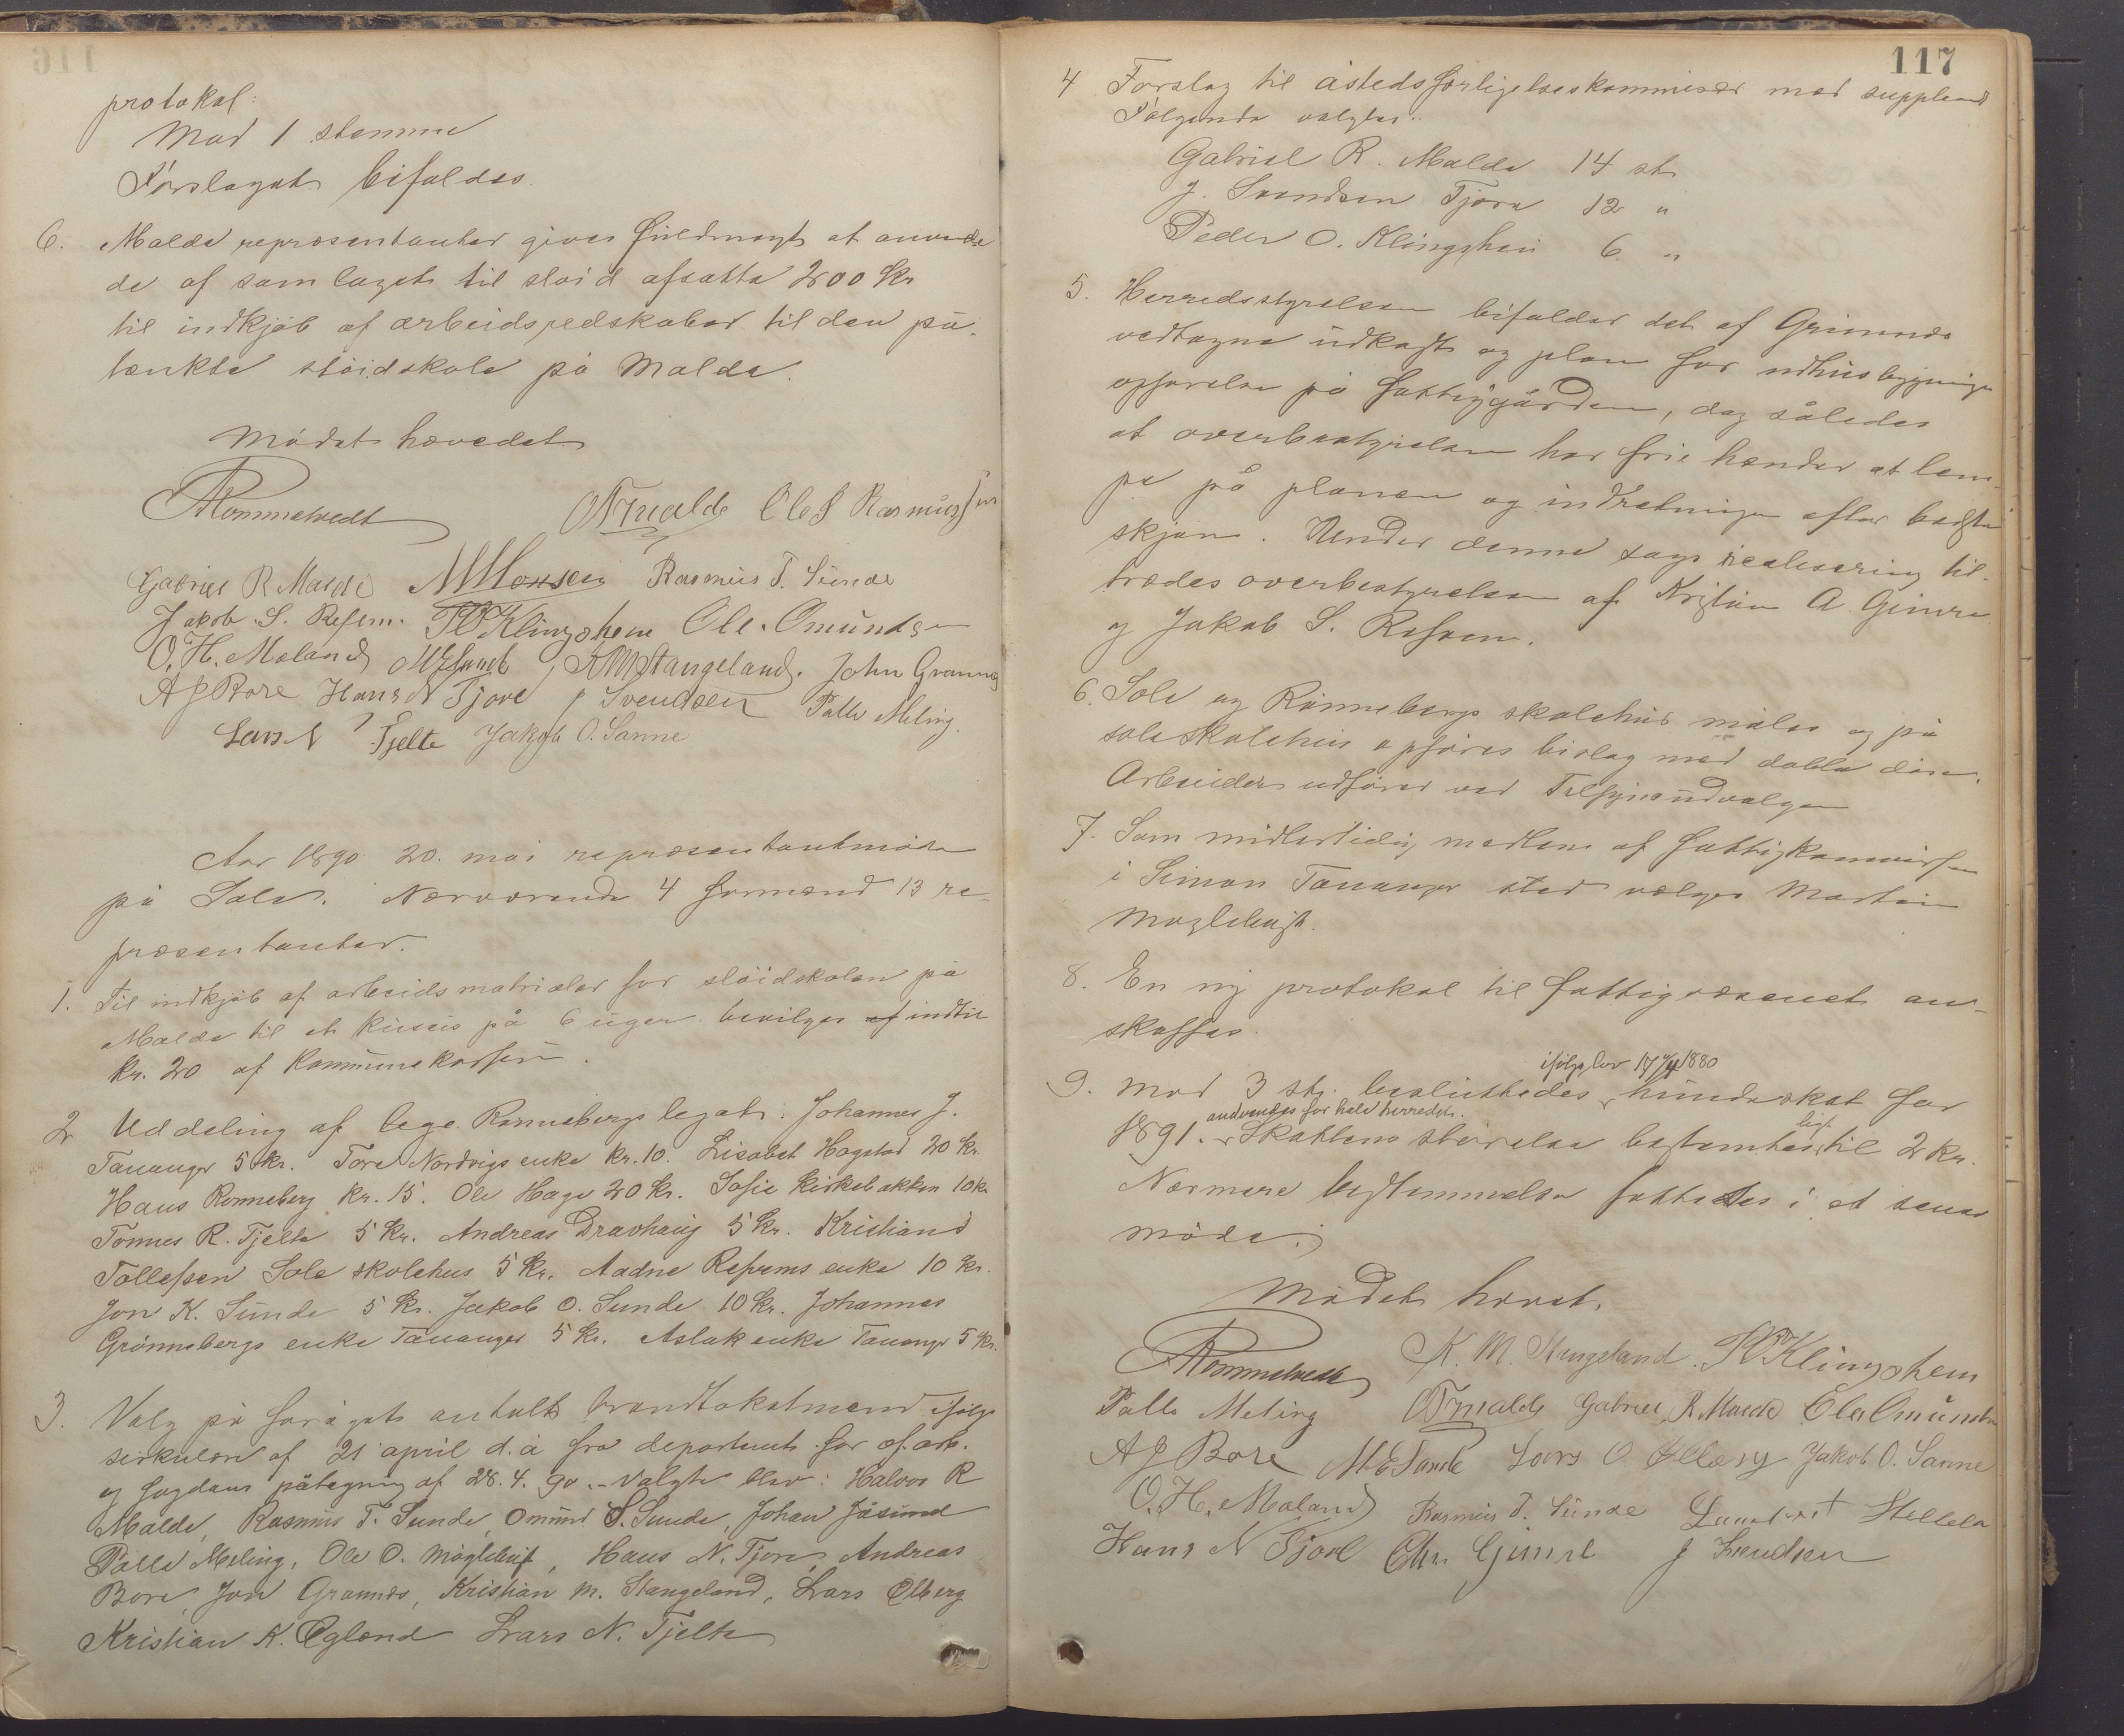 protokol:
Mod 1 stemme
Forslaget bifaldes.
6. Malde repræsentanter gives fuldmagt at anvende
de af samlaget til sløid afsatte 200 Kr
til indkjøb af arbeidsredskaber til den på-
tænkte slöidskole på Malde.
Mödet hævedet
Rommetvedt OTMalde Ole S Rasmussen
Gabriel R Malde M Monsen Rasmus T. Sunde
Jakob S. Refsem. PO Klingshem Ole Omundsen
O. H. Møland M E Sande, K M Stangeland. John Grannes
A J Bore Hans N Tjore J Svendsen Palle Meling.
Lars N Tjelte Jakob O. Sanne
Aar 1890 20. mai repræsentantmöde
på Sole. Nærværende 4 formænd 13 re-
præsentanter.
1. Til indkjöb af arbeidsmatrialer for slöidskolen på
Malde til et kursus på 6 uger bevilges af indtil
kr. 20 af Kommunekassen.
2 Uddeling af lege Rönnebergs legat: Johannes J.
Tananger 5 kr. Tore Nordvigs enke kr. 10. Lisabet Hogstad 20 kr.
Hans Rønneberg kr. 15. Ole Hage 20 kr. Sofie Kirkebakken 10 kr
Tønnes R. Tjelte 5 kr. Andreas Dravhaug 5 kr. Kristian
Tollefsen Sole skolehus 5 kr. Aadne Refsems enke 10 kr.
Jon K. Sunde 5 kr. Jakob O. Sunde 10 kr. Johannes
Grønnebergs enke Tananger 5 kr. Aslak enke Tananger 5 kr.
3. Valg på forøget antal brandtakstmænd ifølge
sirkulære af 21 april d. å fra departemt. for of. arb.
og fogdens påtegning af 28. 4. 90. - Valgte blev: Halvor R
Malde, Rasmus T. Sunde, Omund S. Sunde, Johan Jåsund
Palle Meling, Ole O. Mögleluft, Hans N. Tjore, Andreas
Bore, Jon Grannes, Kristian M. Stangeland, Lars Ølberg
Kristian K. Øglænd Lars N. Tjelte
117
4 Forslag til åstedsforligelseskommisær med suppleant
Følgende valgtes:
Gabriel R. Malde 14 st
J. Svendsen Tjora 12 "
Peder O. Klingsheim 6 "
5. Herredsstyrelsen bifalder det af Grimnæs
vedtagne udkast og plan for udhusbygnings
opførelse på fattiggården, dog således
at overbestyrelsen har frie hænder at lem-
pe på planen og indretningen efter bedste
skjøn. Under denne sags realisering til-
trædes overbestyrelsen af Kristian A. Gimre
og Jakob S. Refsem.
6. Sole og Rönnebergs skolehus males og på
sole skolehus opføres bislag med doble döre.
Arbeidet udføres ved Tilsynsudvalgene
7. Som midlertidig medlem af fattigkommissjon
i Simon Tananger sted vælges Martin
Mögleluft.
8. En ny protokol til fattigvæsenet an-
skaffes.
ifølge lov 17/4 1880
9. Mod 3 st. besluttedes hundeskat for
andvendes for hele herredet.
1891. Skattens størrelse bestemtes til 2 kr.
Nærmere bestemmelse fattedes i et senere
möde.
Mödet hævet.
Rommetvedt K. M. Stangeland. PO Klingshem
Palle Meling OTMalde Gabriel R Malde Ole Omundsen
A J Bore M E Sande Lars O Ølberg Jakob O. Sanne
O. H. Møland Rasmus T. Sunde
Hans N Tjorl Chr. Gimre J Svendsen